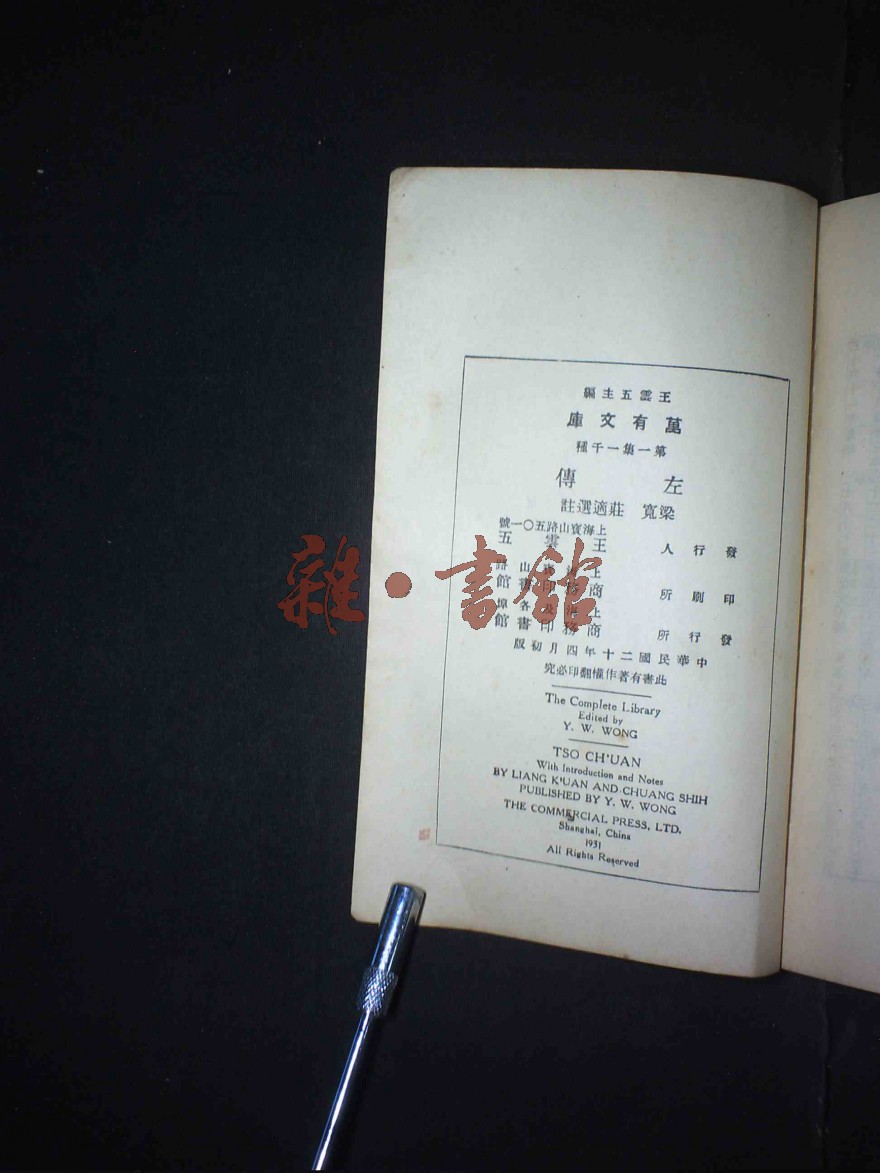 王雲五主編
萬有文庫
第一集一千種
左傳
梁寬 莊適選註
上海寶山路五〇一號
發行人 王雲五
上海寶山路
印刷所 商務印書館
上海及各埠
發行所 商務印書館
中華民國二十年四月初版
此書有著作權翻印必究
The Complete Library
Edited by
Y. W. WONG
TSO CH'UAN
With Introduction and Notes
BY LIANG K'UAN AND CHUANG SHIH
PUBLISHED BY Y. W. WONG
THE COMMERCIAL PRESS, LTD.
Shanghai, China
1931
All Rights Reserved
雜·書館